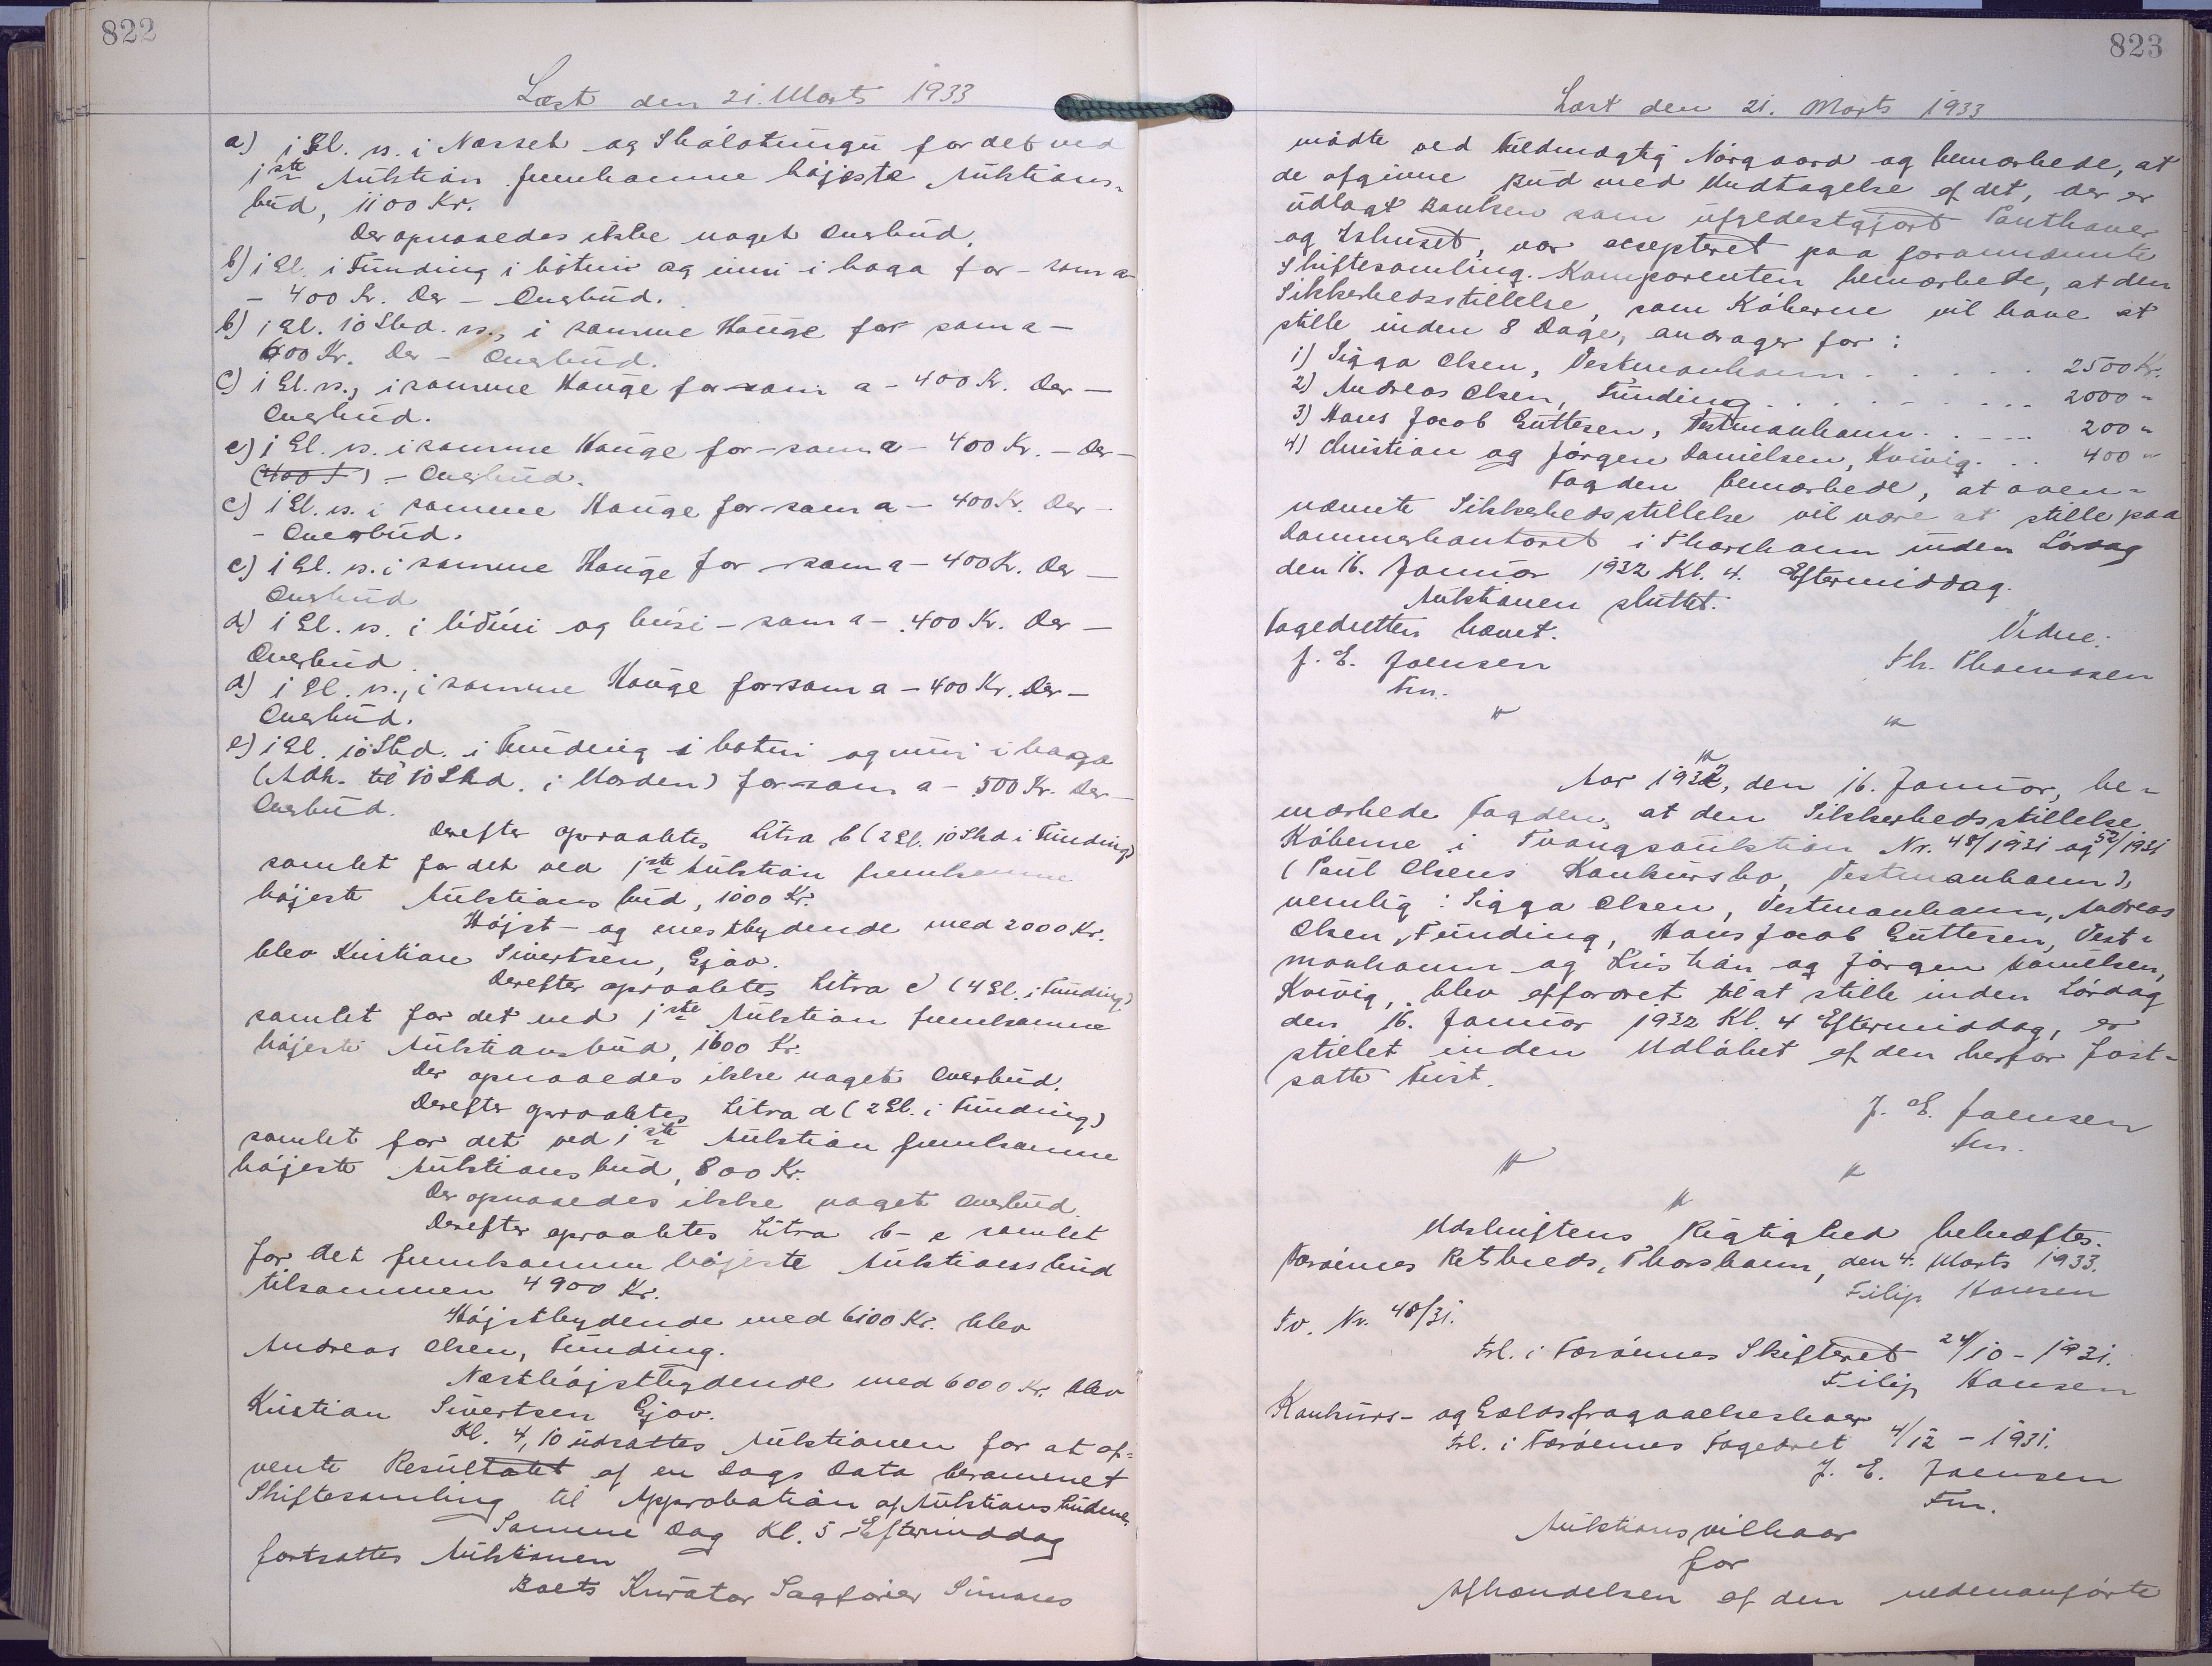 822
Læst den 21. Marts 1933
a) 1 Gl. n. i Nesset og Skálatungu for det ved
1ste Auktion fremkomne højeste Auktions-
bud, 1100 Kr.
Der opnaaedes ikke noget Overbud.
b) 1 Gl. i Funding i bötni og inni i haga for - som a
- 400 Kr. Der - Overbud.
b) 1 Gl. 10 Skd. n., i samme Hauge for som a -
600 Kr. Der - Overbud.
C) 1 Gl. n., i samme Hauge for som a - 400 Kr. Der -
Overbud.
c) 1 Gl. n. i samme Hauge for - som a - 400 Kr. - Der -
(400 f) - Overbud.
c) 1 Gl. n. i samme Hauge for - som a - 400 Kr. Der -
- Overbud.
c) 1 Gl. n. i samme Hauge for - som a - 400 Kr. Der -
Overbud
d) 1 Gl. n. i líðini og húsi - som a - 400 Kr. Der -
Overbud
d) 1 Gl. n., i samme Hauge for som a - 400 Kr. Der -
Overbud.
e) 1 Gl. 10 Skd. i Funding i botni og inni i haga
(Adk. til 10 Skd. i Marden) for som a - 500 Kr. Der -
Overbud.
Derefter opraabtes Litra b (2 Gl. 10 Skd i Funding)
samlet for det ved 1ste Auktion fremkomne
højeste Auktions bud, 1000 Kr.
Højst- og mestbydende med 2000 Kr.
blev Kristian Sivertsen, Gjov.
Derefter opraabtes Litra c (4 Gl. i Funding)
samlet for det ved 1ste Auktion fremkomne
højeste Auktionsbud, 1600 Kr.
Der opnaaedes ikke noget Overbud.
Derefter opraabtes Litra d (2 Gl. i Funding)
samlet for det ved 1ste Auktion fremkomne
højeste Auktions bud, 800 Kr.
Der opnaaedes ikke noget Overbud.
Derefter opraabtes Litra b - e samlet
for det fremkomne højeste Auktionsbud
tilsammen 4900 Kr.
Højstbydende med 6100 Kr. blev
Andreas Olsen, Funding.
Næsthøjstbydende med 6000 Kr. blev
Kristian Sivertsen Gjov.
Kl. 4,10 udsattes Auktionen for at af-
vente Resultatet af en Dags Dato berammet
Skiftesamling til Approbation af Auktionsbudene.
Samme Dag Kl. 5 Eftermiddag
fortsattes Auktionen
Boets Kurator Sagfører Simones
823
Læst den 21. Marts 1933
mødte ved Fuldmægtig Nørgaard og bemærkede, at
de afgivne Bud med Undtagelse af det, der er
udlagt Banken som ufyldestgjort Panthaver
og Ishuset, var accepteret paa forannævnte
Skiftesamling. Komparenten bemærkede, at den
Sikkerhedsstillelse, som Køberne vil have at
stille inden 8 Dage, andrager for:
1) Sigga Olsen, Vestmanhavn . . . . . 2500 Kr.
2) Andreas Olsen, Funding . . . . . . . 2000 "
3) Hans Jacob Guttesen, Vestmanhavn . . . . 200 "
4) Christian og Jørgen Danielsen, Kvivig . . . 400 "
Fogden bemærkede, at oven-
nævnte Sikkerhedsstillelse vil være at stille paa
Dommerkontoret i Thorshavn inden Lørdag
den 16. Januar 1932 Kl. 4. Eftermiddag.
Auktionen sluttet.
Fogedretten hævet.
J. E. Joensen
Fm.
Vidne:
Th. Thomsen
Aar 1932, den 16. Januar, be-
mærkede Fogden, at den Sikkerhedsstillelse
Køberne i Tvangsauktion Nr. 48/1931 og 52/1931
(Poul Olsens Konkursbo, Vestmanhavn),
nemlig: Sigga Olsen, Vestmanhavn, Andreas
Olsen, Funding, Hans Jacob Guttesen, Vest-
manhavn og Kristian og Jørgen Danielsen,
Kvivig, blev affordret til at stille inden Lørdag
den 16. Januar 1932 Kl. 4 Eftermiddag, er
stillet inden Udløbet af den herfor fast-
satte Frist.
J. E. Joensen
Fm.
Udskriftens Rigtighed bekræftes.
Færøernes Retskreds, Thorshavn, den 4. Marts 1933.
Filip Hansen
Tv. Nr. 48/31.
Frl. i Færøernes Skifteret 24/10 - 1931.
Filip Hansen
Konkurs- og Gældsfragaaelsesboer
Frl. i Færøernes Fogedret 4/12 - 1931.
J. E. Joensen
Fm.
Auktionsvilkaar
for
Afhændelsen af den nedenanførte